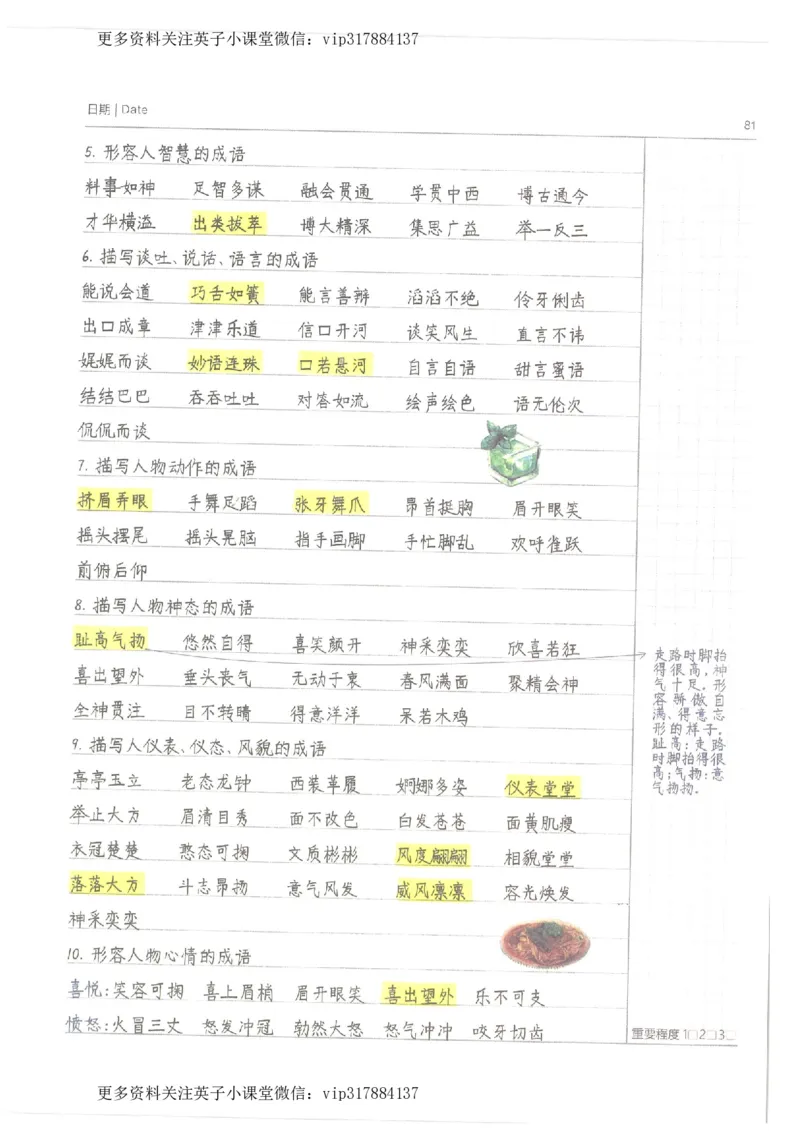 更多资料关注英子小课堂微信：vip317884137
日期 | Date
81
5. 形容人智慧的成语
料事如神 足智多谋 融会贯通 学贯中西 博古通今
才华横溢 出类拔萃 博大精深 集思广益 举一反三
6. 描写谈吐、说话、语言的成语
能说会道 巧舌如簧 能言善辩 滔滔不绝 伶牙俐齿
出口成章 津津乐道 信口开河 谈笑风生 直言不讳
娓娓而谈 妙语连珠 口若悬河 自言自语 甜言蜜语
结结巴巴 吞吞吐吐 对答如流 绘声绘色 语无伦次
侃侃而谈
7. 描写人物动作的成语
挤眉弄眼 手舞足蹈 张牙舞爪 昂首挺胸 眉开眼笑
摇头摆尾 摇头晃脑 指手画脚 手忙脚乱 欢呼雀跃
前俯后仰
8. 描写人物神态的成语
趾高气扬 悠然自得 喜笑颜开 神采奕奕 欣喜若狂
喜出望外 垂头丧气 无动于衷 春风满面 聚精会神
全神贯注 目不转睛 得意洋洋 呆若木鸡
9. 描写人仪表、仪态、风貌的成语
亭亭玉立 老态龙钟 西装革履 婀娜多姿 仪表堂堂
举止大方 眉清目秀 面不改色 白发苍苍 面黄肌瘦
衣冠楚楚 憨态可掬 文质彬彬 风度翩翩 相貌堂堂
落落大方 斗志昂扬 意气风发 威风凛凛 容光焕发
神采奕奕
10. 形容人物心情的成语
喜悦：笑容可掬 喜上眉梢 眉开眼笑 喜出望外 乐不可支
愤怒：火冒三丈 怒发冲冠 勃然大怒 怒气冲冲 咬牙切齿
走路时脚抬
得很高，神
气十足。形
容骄傲自
满、得意忘
形的样子。
趾高：走路
时脚抬得很
高；气扬：意
气扬扬。
重要程度 1□2□3□
更多资料关注英子小课堂微信：vip317884137